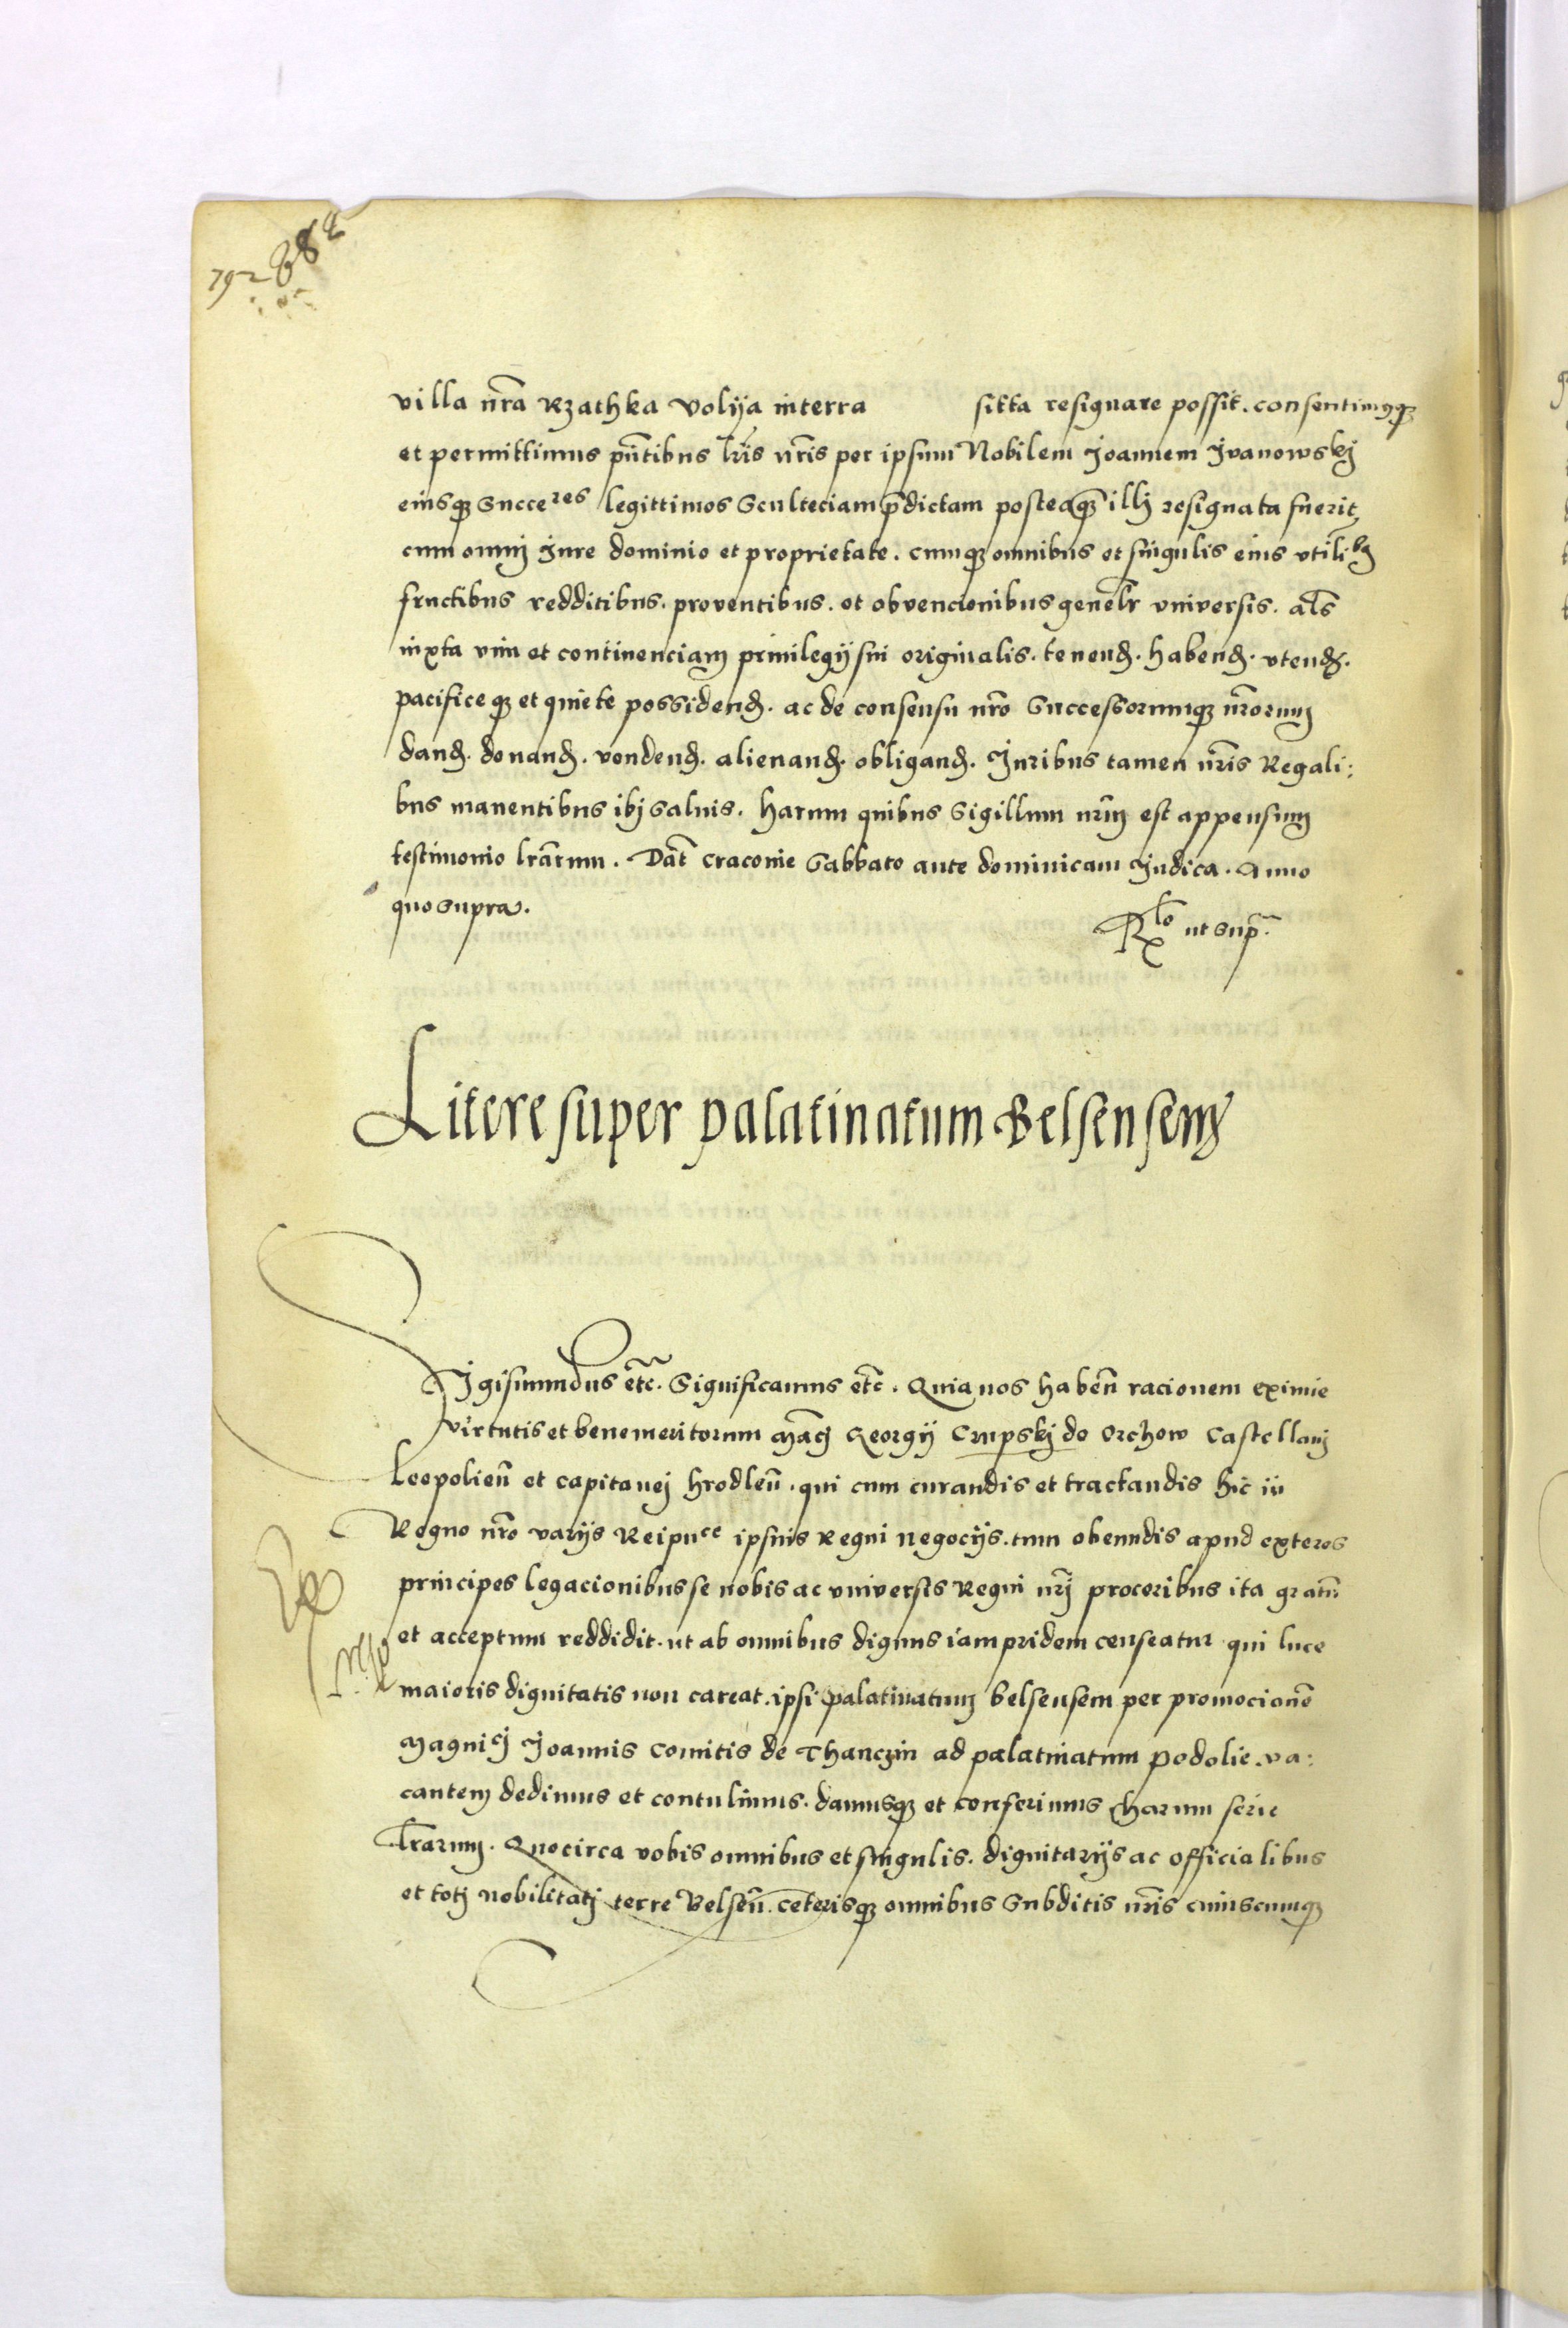 792 882
villa nra Rzathka Volija in terra sitta resignare possit. consentimusq3
et permittimus pntibus lris nris per ipsum Nobilem Joannem Jvanowskj
eiusq3 Succeres legittimos Sculteciam pdictam posteaq3 illj resignata fuerit
cum omnj Jure dominio et proprietate. cumq3 omnibus et singulis eius vtilib3
fructibus redditibus. proventibus. et obvencionibus genelr vniversis. als
iuxta vim et continenciam privilegij sui originalis. tenend. habend. vtend.
pacificeq3 et quiete possidend. ac de consensu nro Successorumq3 nrorum
dand. donand. vendend. alienand. obligand. Juribus tamen nris Regali:
bus manentibus ibj salvis. Harum quibus Sigillum nrm est appensum
testimonio lrarum. Dat Cracovie Sabbato ante dominicam Judica. Anno
quo supra.
Rlo ut sup.
Litere super palatinatum Belsensem
Sigismundus etc. Significamus etc. Quia nos haben racionem eximie
virtutis et benemeritorum Maci Georgij Crupskj de Orchow Castellanj
Leopolien et capitanej hrodlen. qui cum curandis et tractandis hic in
Regno nro varijs Reipuce ipsius Regni negocijs. tum obeundis apud exteros
principes legacionibus se nobis ac vniversis Regni nrj proceribus ita gratu
et acceptum reddidit. ut ab omnibus dignus iam pridem censeatur qui luce
maioris dignitatis non careat. ipsi palatinatum belsensem per promocione
Magnicj Joannis Comitis de Thanczin ad palatinatum podolie. va:
cantem dedimus et contulimus. damusq3 et conferimus harum serie
lrarum. Quocirca vobis omnibus et singulis. dignitarijs ac officialibus
et totj nobilitatj terre Belsen. ceterisq3 omnibus Subditis nris cuiuscumq3